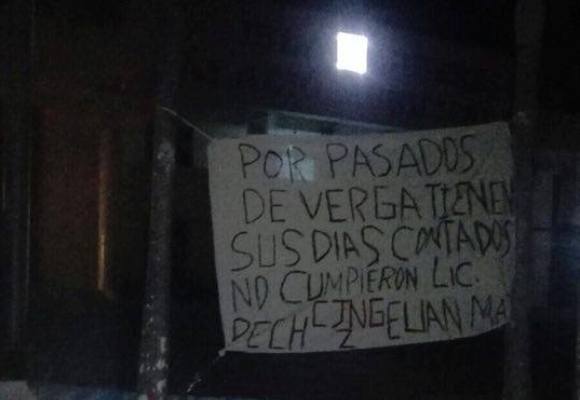 POR PASADOS
DE VERGA TIENEN
SUS DIAS CONTADOS
NO CUMPIERON LIC.
PECH